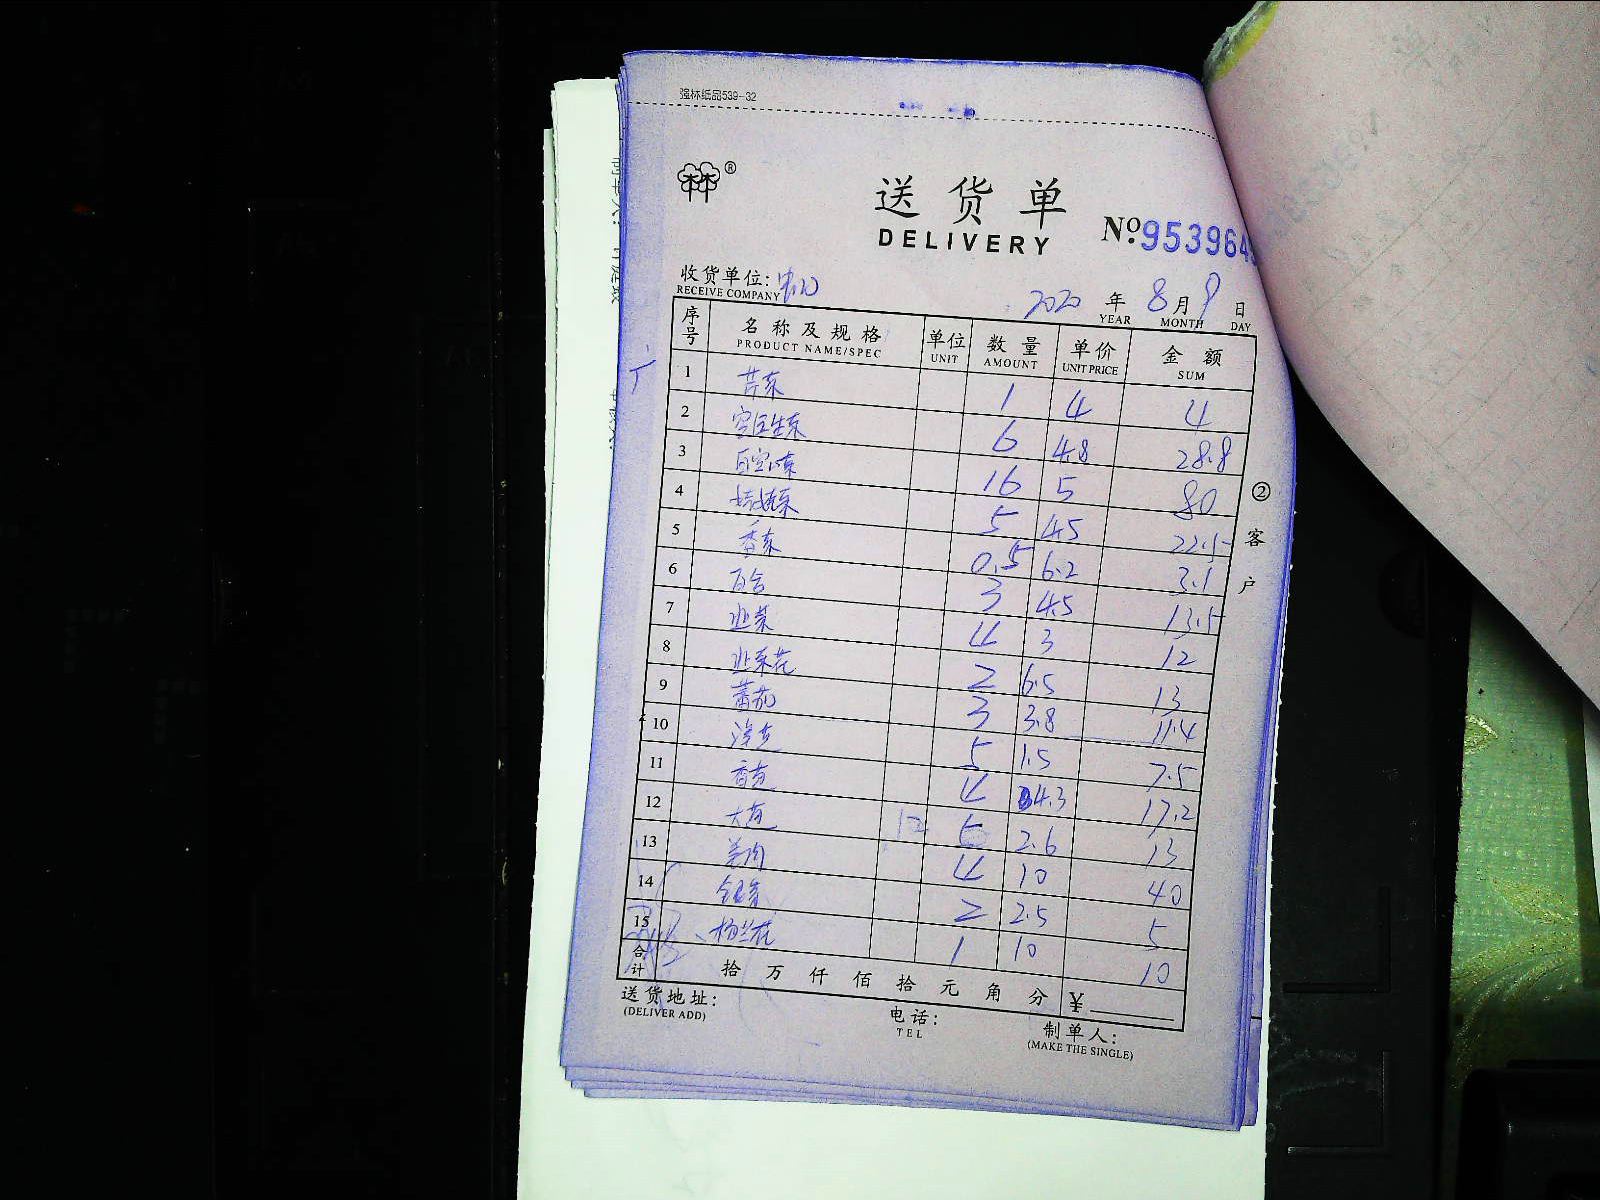 强林纸品539-32
林林®
送货单
DELIVERY
№ 953964
收货单位:
RECEIVE COMPANY
2020 年 8 月 9 日
YEAR MONTH DAY
序号 名称及规格 单位 数量 单价 金额
PRODUCT NAME/SPEC UNIT AMOUNT UNIT PRICE SUM
1 芹菜 1 4 4
2 6 4.8 28.8
3 16 5 80
4 5 4.5 22.5
5 香菜 0.5 6.2 3.1
6 百合 3 4.5 13.5
7 韭菜 4 3 12
8 韭菜花 2 6.5 13
9 蕃茄 3 3.8 11.4
10 5 1.5 7.5
11 香芹 4 4.3 17.2
12 12 5 2.6 13
13 4 10 40
14 2 2.5 5
15 1 10 10
合计 拾 万 仟 佰 拾 元 角 分 ¥
送货地址:
(DELIVER ADD)
电话:
TEL
制单人:
(MAKE THE SINGLE)
② 客户